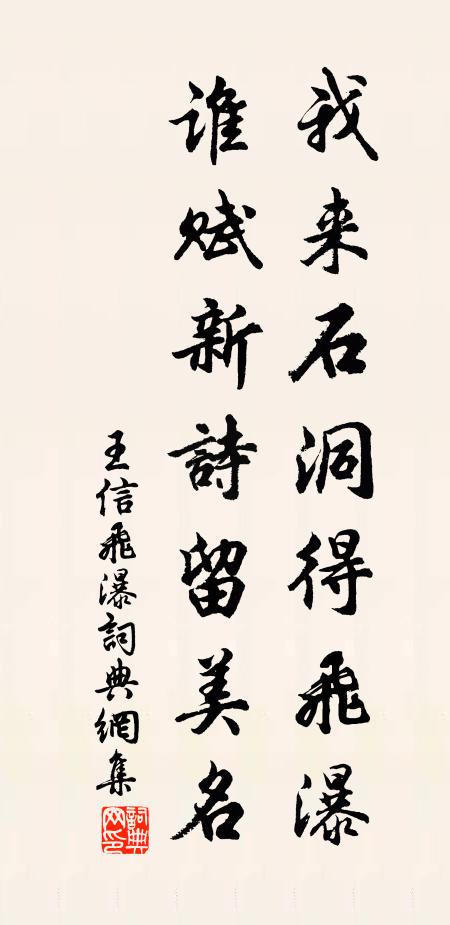 我来石洞得飛瀑
誰賦新詩留美名
王信飛瀑詞典網集
詞典網印